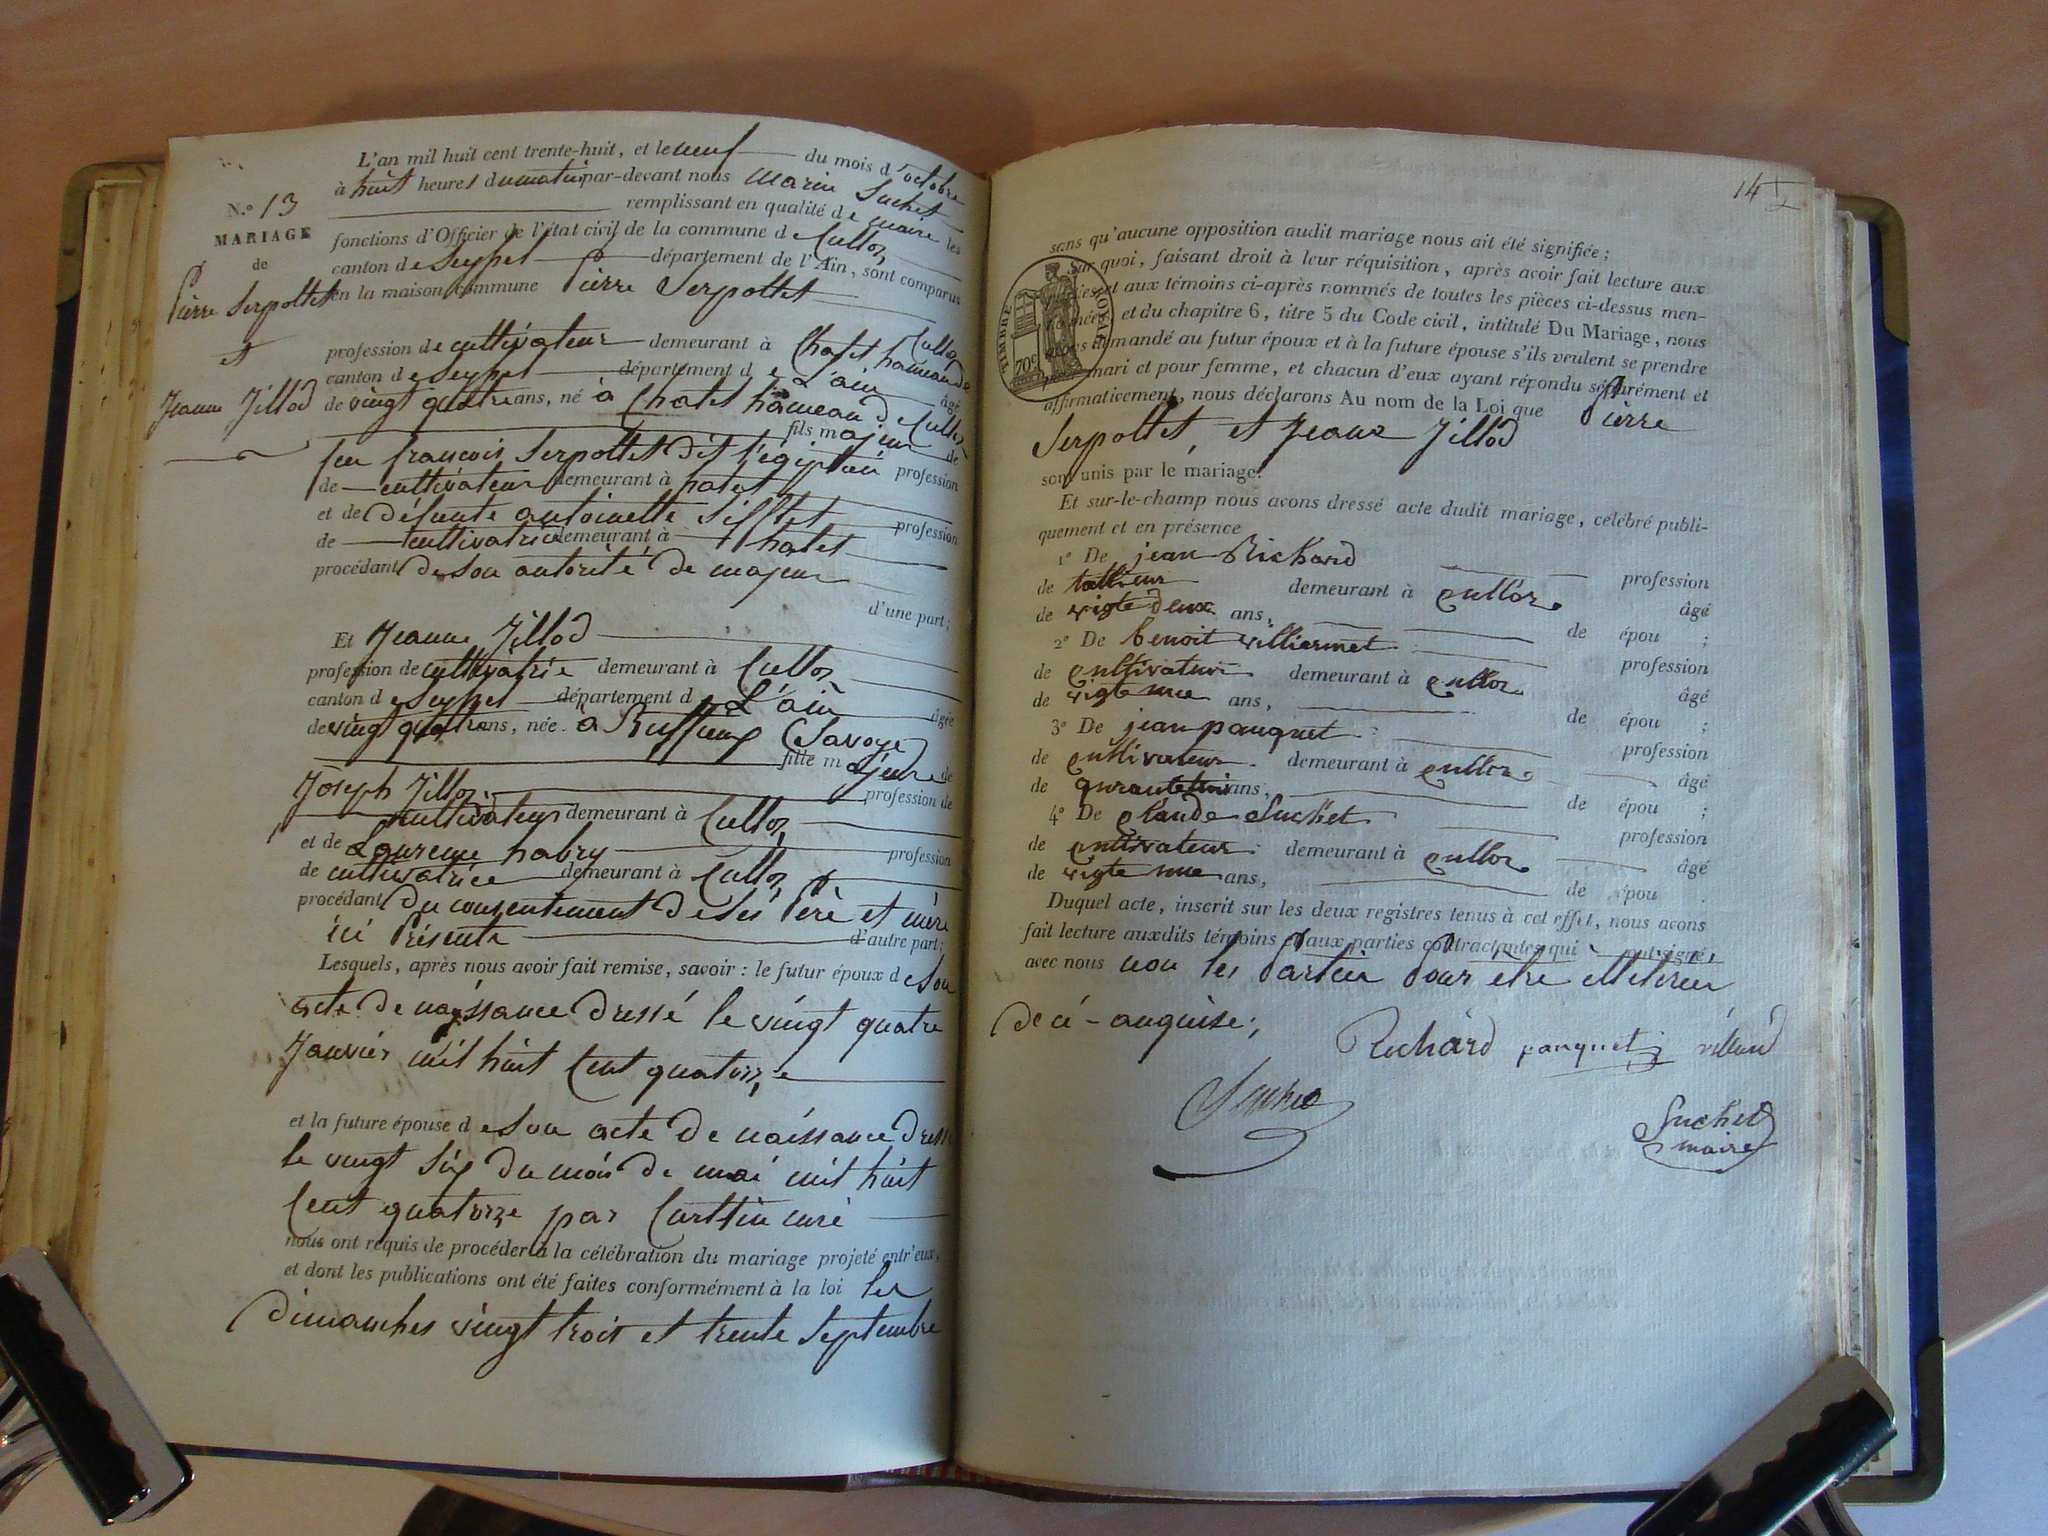 L'an mil huit cent trente-huit, et le neuf du mois d'octobre
à huit heures du matin par-devant nous marin Suchet
remplissant en qualité de maire les
fonctions d'Officier de l'état civil de la commune de Culloz
canton de Seyssel département de l'Ain, sont comparus
en la maison commune Pierre Serpollet
N.º 13
MARIAGE
de
Pierre Serpollet
et
Jeanne Jillod
profession de cultivateur demeurant à Chatel hameau de Culloz
canton de Seyssel département de L'ain âgé
de vingt quatre ans, né à Chatel hameau de Culloz
fils majeur de
feu françois Serpollet dit profession
de cultivateur demeurant à hatel
et de défunte antoinette profession
de cultivatrice demeurant à hatel
procédant de son autorité de majeur
d'une part;
Et Jeanne Jillod
profession de cultivatrie demeurant à Culloz
canton de Seyssel département de L'ain âgée
de vingt quatre ans, née à Ruffieux (Savoye)
fille majeure de
Joseph Jilloz profession de
cultivateur demeurant à Culloz
et de Laurence habry profession
de cultivatrice demeurant à Culloz
procédant du consentement de ses Père et mère
ici Présente d'autre part;
Lesquels, après nous avoir fait remise, savoir : le futur époux de son
acte de naissance dressé le vingt quatre
Janvier mil huit Cent quatorze
et la future épouse de son acte de naissance dressé
le vingt six du mois de mai mil huit
Cent quatorze par curé
nous ont requis de procéder à la célébration du mariage projeté entr'eux,
et dont les publications ont été faites conformément à la loi les
dimanches vingt trois et trente Septembre
14
sans qu'aucune opposition audit mariage nous ait été signifiée;
Sur quoi, faisant droit à leur réquisition, après avoir fait lecture aux
parties et aux témoins ci-après nommés de toutes les pièces ci-dessus men-
tionnées, et du chapitre 6, titre 5 du Code civil, intitulé Du Mariage, nous
avons demandé au futur époux et à la future épouse s'ils veulent se prendre
pour mari et pour femme, et chacun d'eux ayant répondu séparément et
affirmativement, nous déclarons Au nom de la Loi que Pierre
TIMBRE ROYAL
70c
Serpollet, et Jeanne Jillod
sont unis par le mariage.
Et sur-le-champ nous avons dressé acte dudit mariage, célébré publi-
quement et en présence
1º De jean Richard profession
de tallieur demeurant à culloz âgé
de vigte deux ans, de épou ;
2º De benoit villiermet profession
de cultivateur demeurant à culloz âgé
de vigte nue ans, de épou ;
3º De jean pauquet profession
de cultivateur demeurant à culloz âgé
de ans, de épou ;
4º De claude Suchet profession
de cultivateur demeurant à culloz âgé
de vigte nue ans, de épou .
Duquel acte, inscrit sur les deux registres tenus à cet effet, nous avons
fait lecture auxdits témoins et aux parties contractantes qui ont signé,
avec nous non les Parties Pour etre illiterer
de ce enquise;
Richard pauquet
Suchet
Suchet
maire